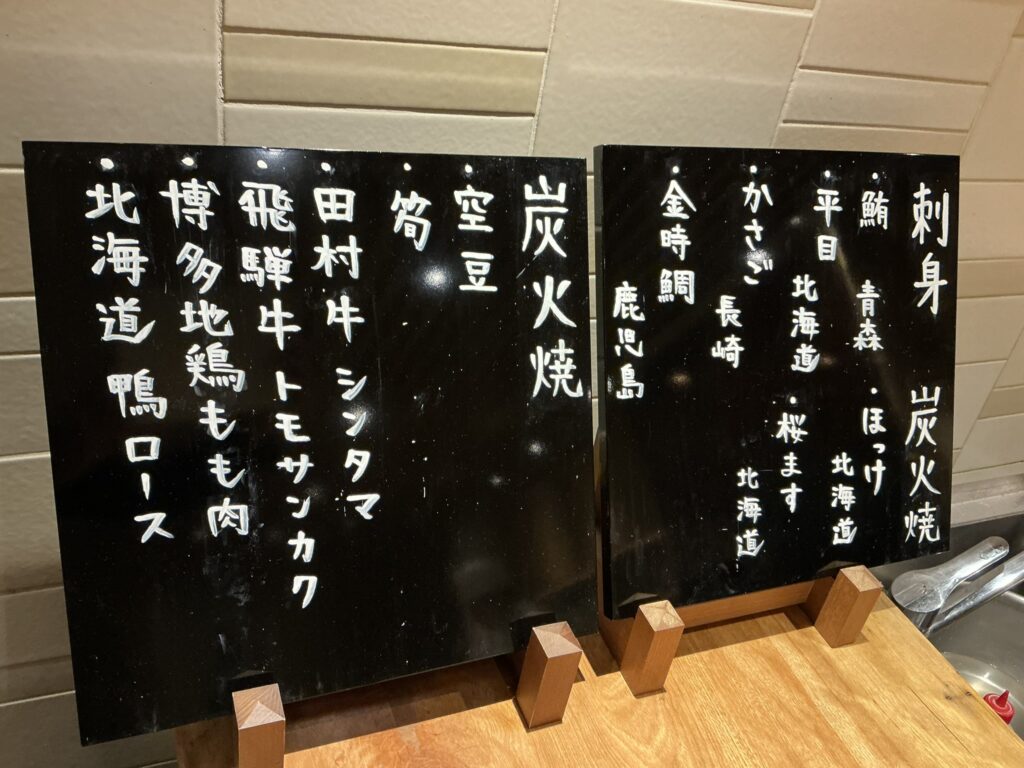 刺身
・鮪 青森
・平目 北海道
・かさご 長崎
・金時鯛 鹿児島
炭火焼
・ほっけ 北海道
・桜ます 北海道
炭火焼
・空豆
・筍
・田村牛 シンタマ
・飛騨牛 トモサンカク
・博多地鶏もも肉
・北海道 鴨ロース